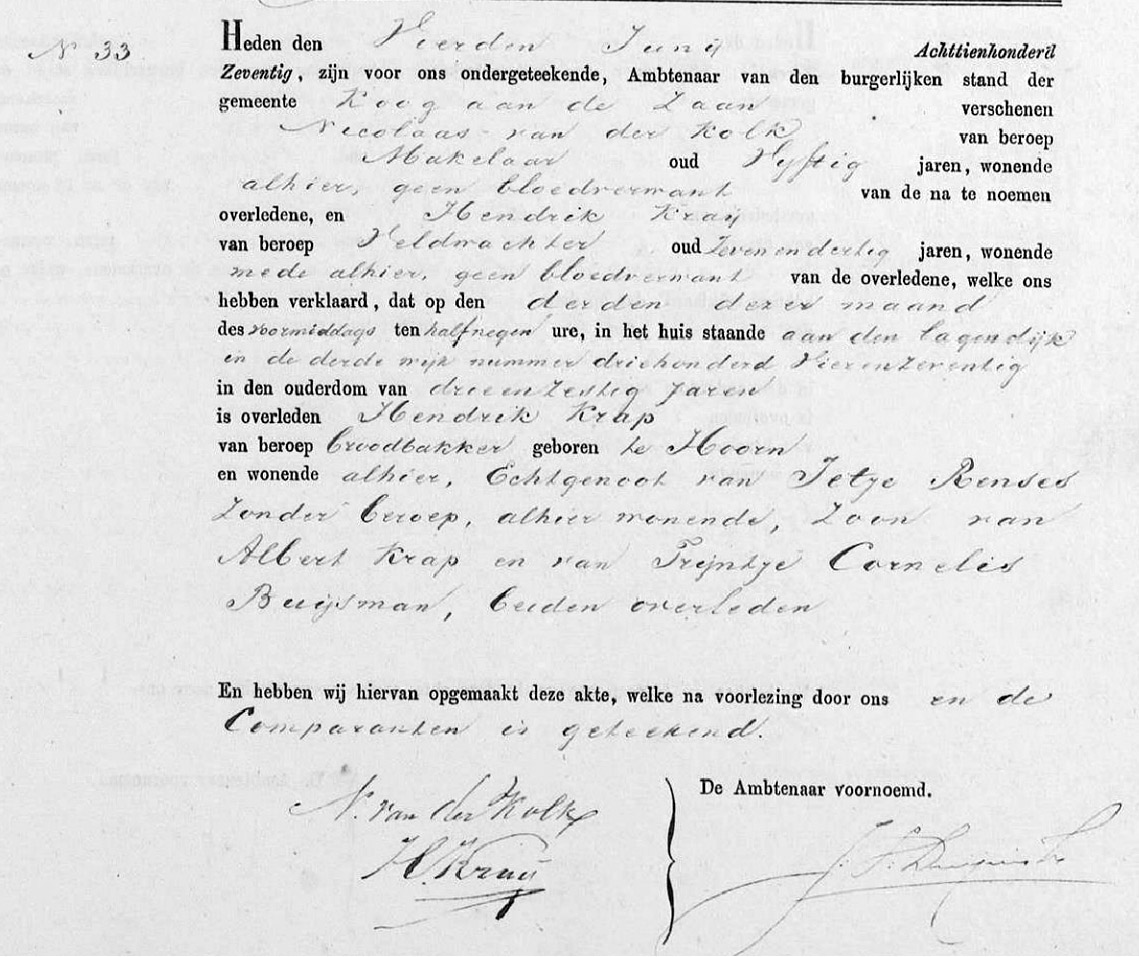 No 33
Heden den Vierden Juny Achttienhonderd
Zeventig, zijn voor ons ondergeteekende, Ambtenaar van den burgerlijken stand der
gemeente Koog aan de Zaan verschenen
Nicolaas van der Kolk van beroep
Makelaar oud Vyftig jaren, wonende
alhier, geen bloedverwant van de na te noemen
overledene, en Hendrik Kray
van beroep Veldwachter oud Zevenendertig jaren, wonende
mede alhier, geen bloedverwant van de overledene, welke ons
hebben verklaard, dat op den derden dezer maand
des voormiddags ten half negen ure, in het huis staande aan den lagendijk
in de derde wijk nummer driehonderd Vierenzeventig
in den ouderdom van drieenzestig jaren
is overleden Hendrik Krap
van beroep broodbakker geboren te Hoorn
en wonende alhier, Echtgenoot van Jetje Renses
Zonder beroep, alhier wonende, Zoon van
Albert Krap en van Trijntje Cornelis
Buijsman, beiden overleden
En hebben wij hiervan opgemaakt deze akte, welke na voorlezing door ons en de
Comparanten is geteekend.
De Ambtenaar voornoemd.
N. van der Kolk
H. Kraij